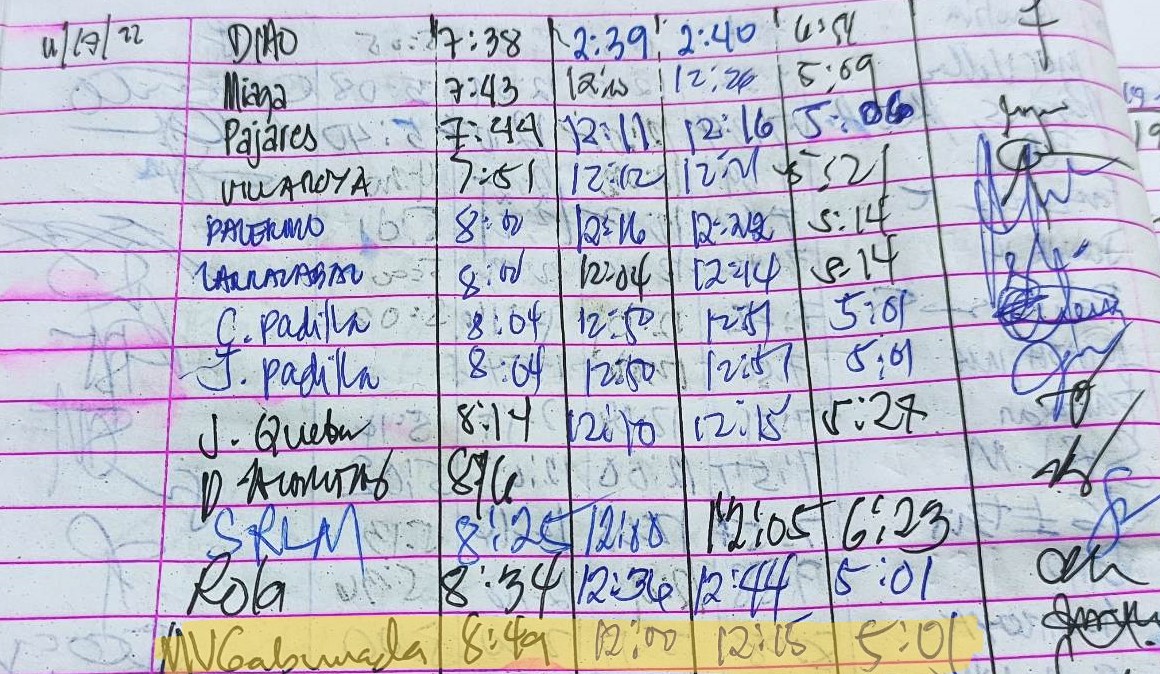 DIAO 7:38 12:39 12:40 4:54
Miaga 7:43 12:10 12:26 5:09
Pajares 7:44 12:11 12:16 5:06
VILLAROYA 7:51 12:12 12:21 5:21
PALERMO 8:00 12:16 12:22 5:14
LARRAZABAL 8:00 12:04 12:14 5:14
C. Padilla 8:04 12:50 12:51 5:01
J. Padilla 8:04 12:50 12:51 5:01
J. 8:14 12:10 12:15 5:27
D 8:16
SRLM 8:25 12:00 12:05 6:23
Rola 8:34 12:36 12:44 5:01
MVGabunada 8:49 12:00 12:15 5:01